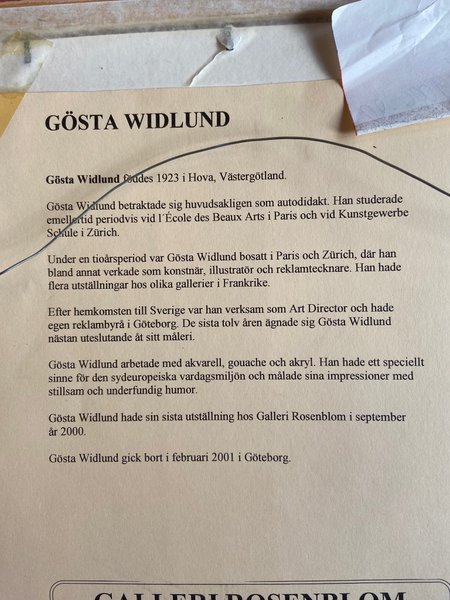 GÖSTA WIDLUND
Gösta Widlund föddes 1923 i Hova, Västergötland.
Gösta Widlund betraktade sig huvudsakligen som autodidakt. Han studerade
emellertid periodvis vid l´École des Beaux Arts i Paris och vid Kunstgewerbe
Schule i Zürich.
Under en tioårsperiod var Gösta Widlund bosatt i Paris och Zürich, där han
bland annat verkade som konstnär, illustratör och reklamtecknare. Han hade
flera utställningar hos olika gallerier i Frankrike.
Efter hemkomsten till Sverige var han verksam som Art Director och hade
egen reklambyrå i Göteborg. De sista tolv åren ägnade sig Gösta Widlund
nästan uteslutande åt sitt måleri.
Gösta Widlund arbetade med akvarell, gouache och akryl. Han hade ett speciellt
sinne för den sydeuropeiska vardagsmiljön och målade sina impressioner med
stillsam och underfundig humor.
Gösta Widlund hade sin sista utställning hos Galleri Rosenblom i september
år 2000.
Gösta Widlund gick bort i februari 2001 i Göteborg.
GALLERI ROSENBLOM